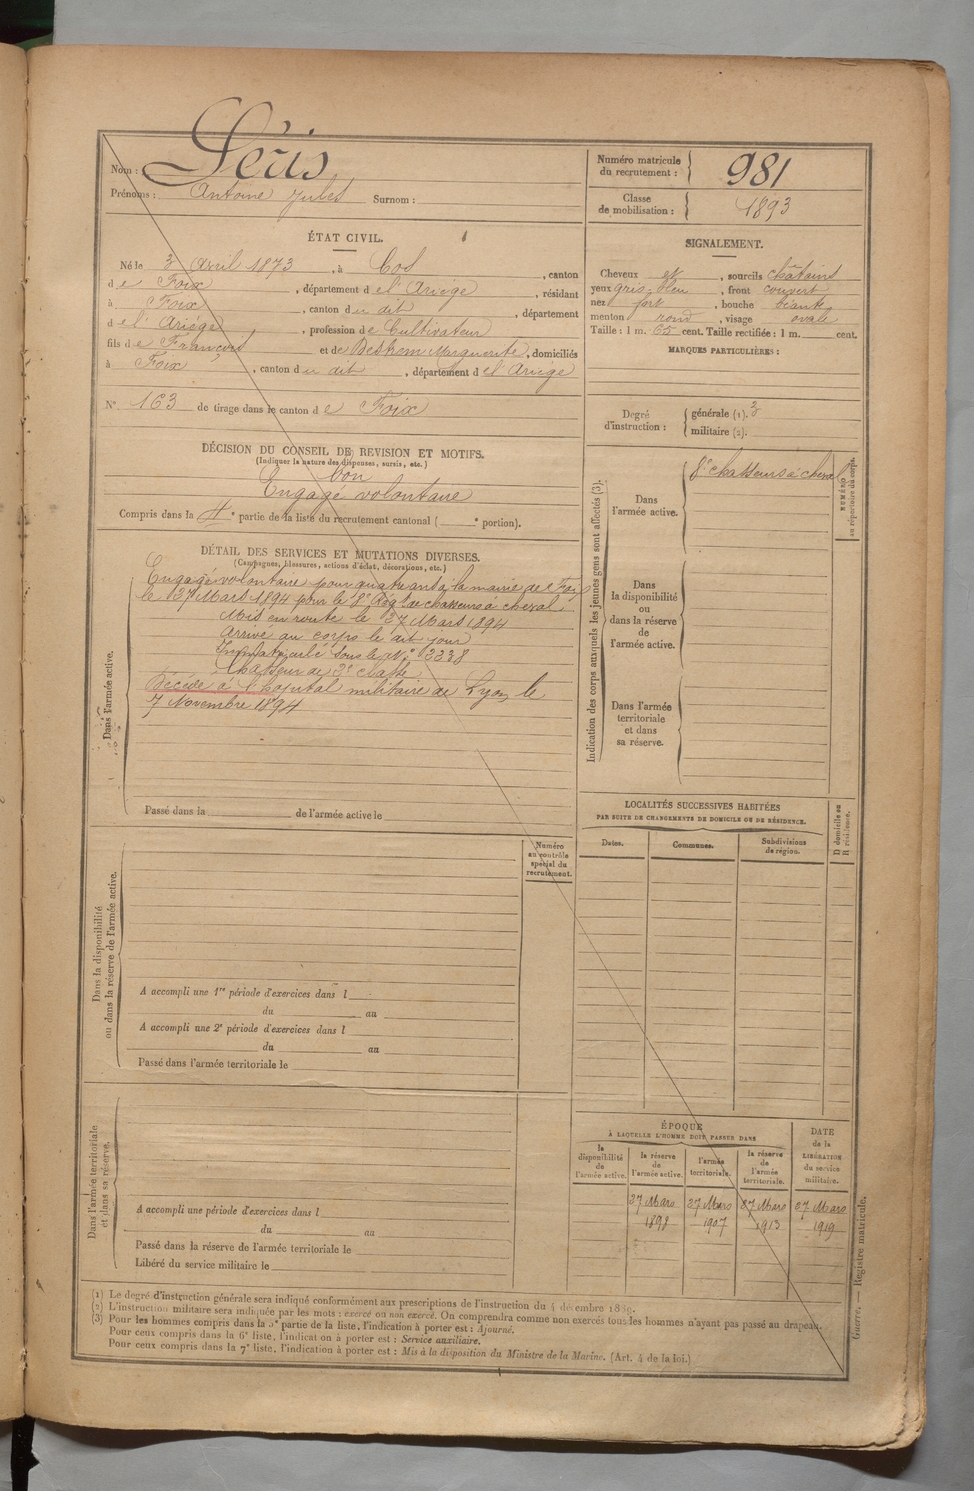 Nom : Léris
Prénoms : Antoine Jules Surnom :
Numéro matricule du recrutement : 981
Classe de mobilisation : 1893
ÉTAT CIVIL.
Né le 3 Avril 1873, à Cos, canton
de Foix, département de l'Ariège, résidant
à Foix, canton du dit, département
de l'Ariège, profession de Cultivateur
fils de François et de Marguerite, domiciliés
à Foix, canton du dit, département de l'Ariège
N° 163 de tirage dans le canton de Foix
SIGNALEMENT.
Cheveux et, sourcils châtains
yeux gris-bleu, front couvert
nez fort, bouche béante
menton rond, visage ovale
Taille : 1 m. 65 cent. Taille rectifiée : 1 m. cent.
MARQUES PARTICULIÈRES :
Degré d'instruction : générale (1). 3
militaire (2).
DÉCISION DU CONSEIL DE REVISION ET MOTIFS.
(Indiquer la nature des dispenses, sursis, etc.)
bon
Engagé volontaire
Compris dans la partie de la liste du recrutement cantonal ( e portion).
DÉTAIL DES SERVICES ET MUTATIONS DIVERSES.
(Campagnes, blessures, actions d'éclat, décorations, etc.)
Dans l'armée active.
Engagé volontaire pour quatre ans à la mairie de Foix
le 27 Mars 1894 pour le 8e Régt de chasseurs à cheval.
Mis en route le 27 Mars 1894
Arrivé au corps le dit jour
Immatriculé sous le N° 2238
Chasseur de 2e classe.
Décédé à l'hôpital militaire de Lyon, le
7 Novembre 1894
Passé dans la de l'armée active le
Indication des corps auxquels les jeunes gens sont affectés (3).
Dans l'armée active.
8e chasseurs à cheval
NUMÉRO au répertoire du corps.
Dans la disponibilité ou dans la réserve de l'armée active.
Dans l'armée territoriale et dans sa réserve.
LOCALITÉS SUCCESSIVES HABITÉES
PAR SUITE DE CHANGEMENTS DE DOMICILE OU DE RÉSIDENCE.
Dates. Communes. Subdivisions de région.
D domicile ou R résidence.
Numéro au contrôle spécial du recrutement.
Dans la disponibilité ou dans la réserve de l'armée active.
A accompli une 1re période d'exercices dans l
du au
A accompli une 2e période d'exercices dans l
du au
Passé dans l'armée territoriale le
Dans l'armée territoriale et dans sa réserve.
A accompli une période d'exercices dans l
du au
Passé dans la réserve de l'armée territoriale le
Libéré du service militaire le
ÉPOQUE
À LAQUELLE L'HOMME DOIT PASSER DANS
la disponibilité de l'armée active.
la réserve de l'armée active.
l'armée territoriale.
la réserve de l'armée territoriale.
DATE de la LIBÉRATION du service militaire.
27 Mars 27 Mars 27 Mars 27 Mars
1898 1907 1913 1919
(1) Le degré d'instruction générale sera indiqué conformément aux prescriptions de l'instruction du 4 décembre 1889.
(2) L'instruction militaire sera indiquée par les mots : exercé ou non exercé. On comprendra comme non exercés tous les hommes n'ayant pas passé au drapeau.
(3) Pour les hommes compris dans la 5e partie de la liste, l'indication à porter est : Ajourné.
Pour ceux compris dans la 6e liste, l'indication à porter est : Service auxiliaire.
Pour ceux compris dans la 7e liste, l'indication à porter est : Mis à la disposition du Ministre de la Marine. (Art. 4 de la loi.)
Guerre. — Registre matricule.